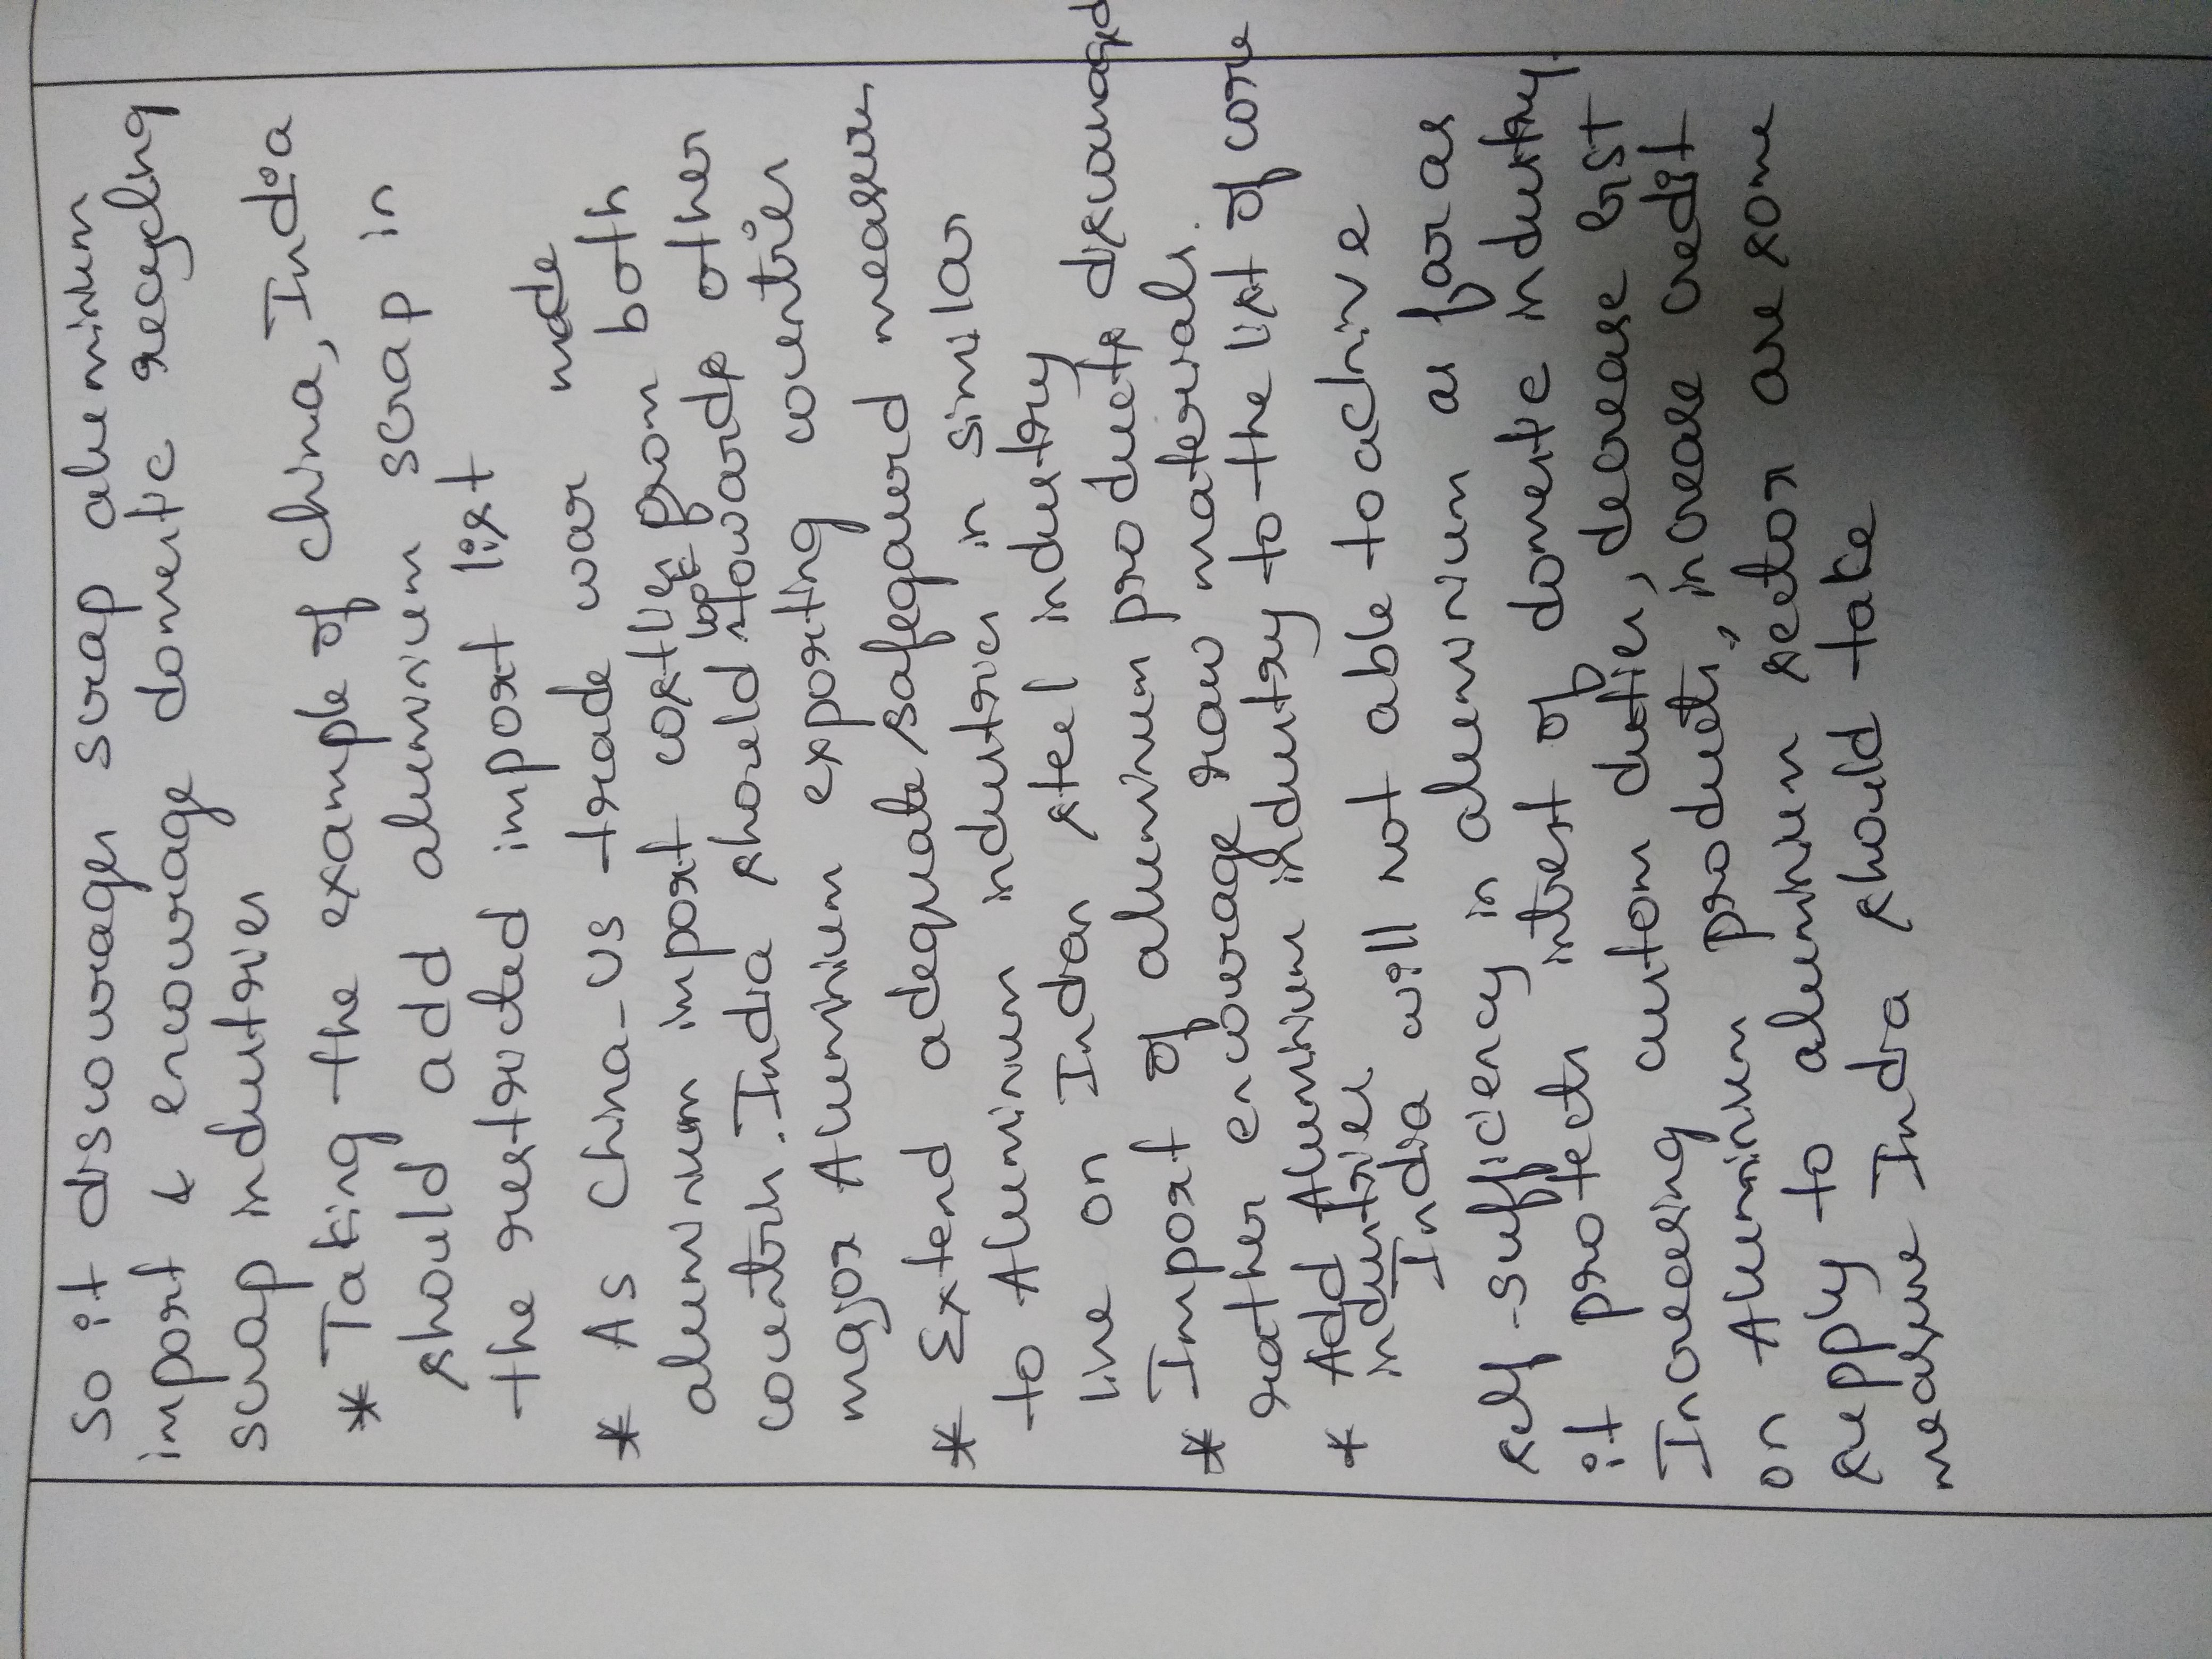 so it discourages scrap aluminium
import & encourage domestic recycling
scrap industries
* Taking the example of china, India
should add aluminium scrap in
the restricted import list
* As China-US trade war made
aluminium import costlier from both
countrh. India should look towards other
major Aluminium exporting countries
* Extend adequate/safeguard measures
to Aluminium industries in similar
line on Indian steel industry
* Import of aluminium products discouraged
rather encourage raw materials.
* Add Aluminium industry to the list of core
industries
India will not able to achive
self-sufficiency in aluminium as far as
it protects intrest of domestic industry.
Increesing custom duties, decrease GST
on Aluminium products, increase credit
supply to aluminium sector are some
measure India should take